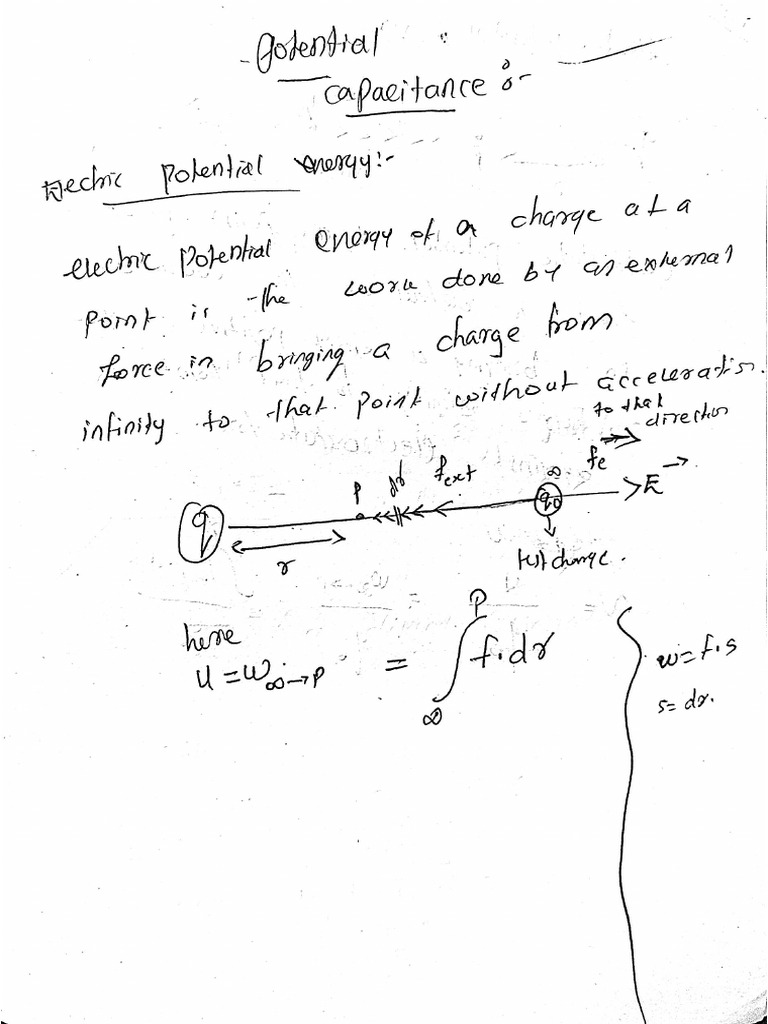 Potential
capacitance :-
Electric potential energy:-
electric potential energy of a charge at a
point is the work done by an external
force in bringing a charge from
infinity to that point without acceleration.
to that
direction
fe
P dr fext ∞
q q0 E→
r
test change.
here
u = w∞→p = ∫∞P f.dr
w = f.s
s = dr.